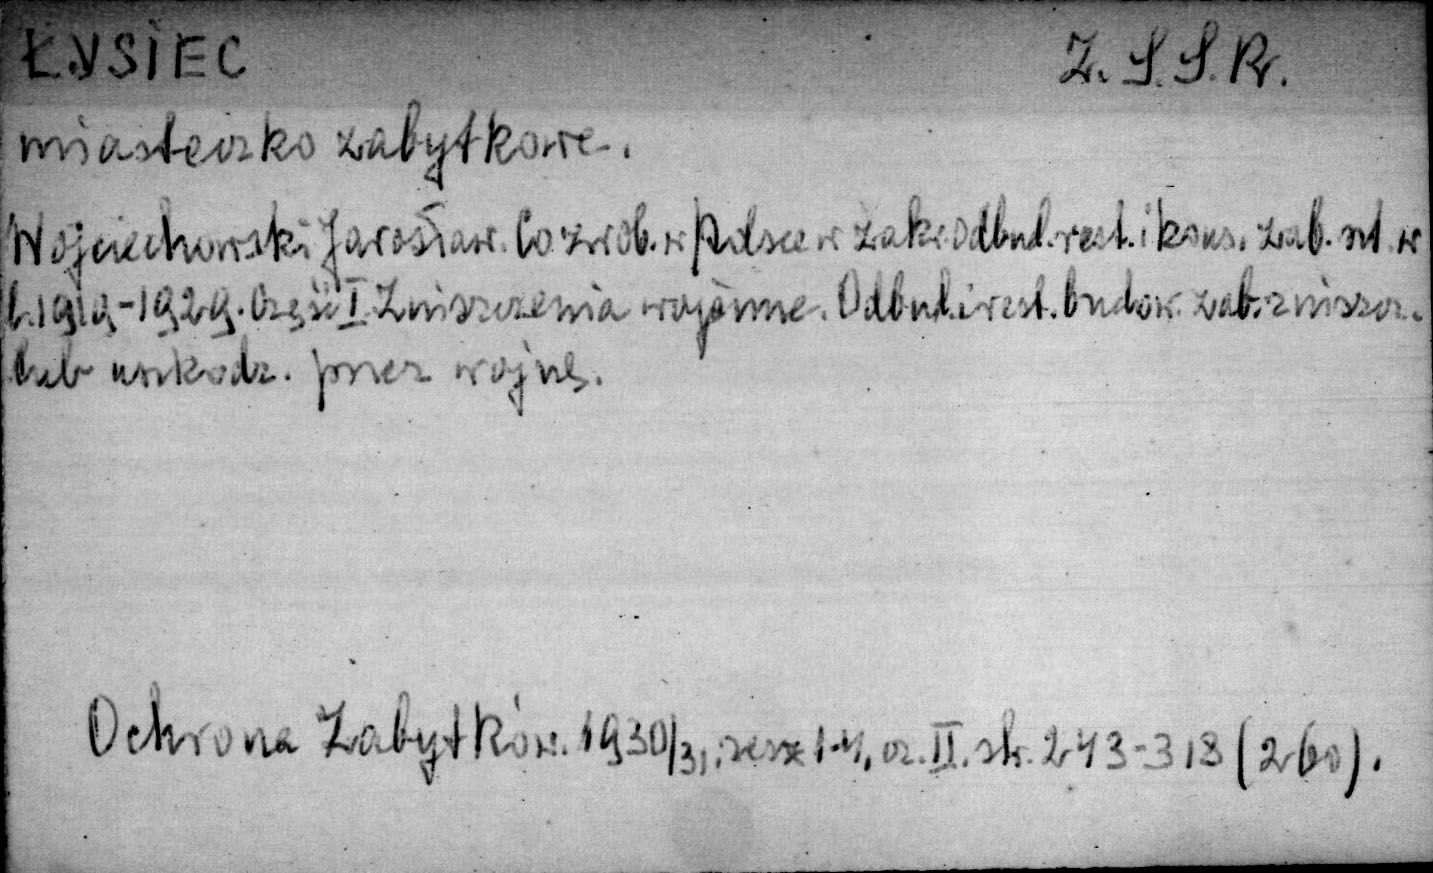 ŁYSIEC Z.S.S.R.
miasteczko zabytkowe.
Wojciechowski Jarosław. Co zrob. w Polsce w zakr. odbud. rest. i kons. zab. szt. w
l. 1919-1929. Część I Zniszczenia wojenne. Odbud. i rest. budow. zab. zniszcz.
lub uszkodz. przez wojnę.
Ochrona Zabytków. 1930/31, zesz 1-4, cz. II. str. 243-318 (260).